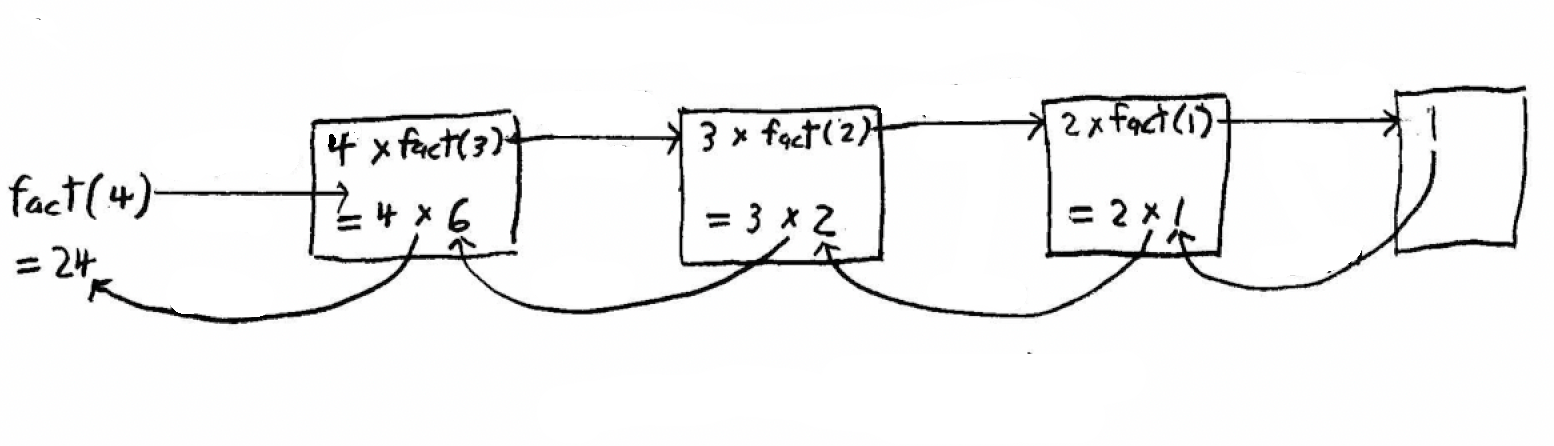 fact(4)
= 24
4 × fact(3)
= 4 × 6
3 × fact(2)
= 3 × 2
2 × fact(1)
= 2 × 1
1